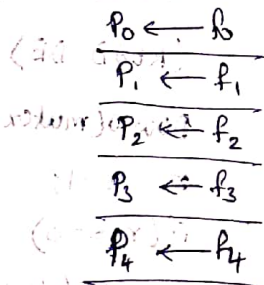 P₀ ← f₀
P₁ ← f₁
P₂ ← f₂
P₃ ← f₃
P₄ ← f₄